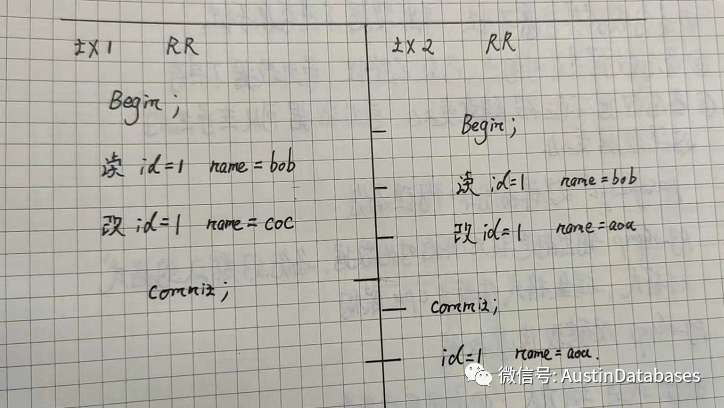 tx1 RR
tx2 RR
Begin;
Begin;
读 id=1 name=bob
读 id=1 name=bob
改 id=1 name=coc
改 id=1 name=aoa
commit;
commit;
id=1 name=aoa.
微信号: AustinDatabases